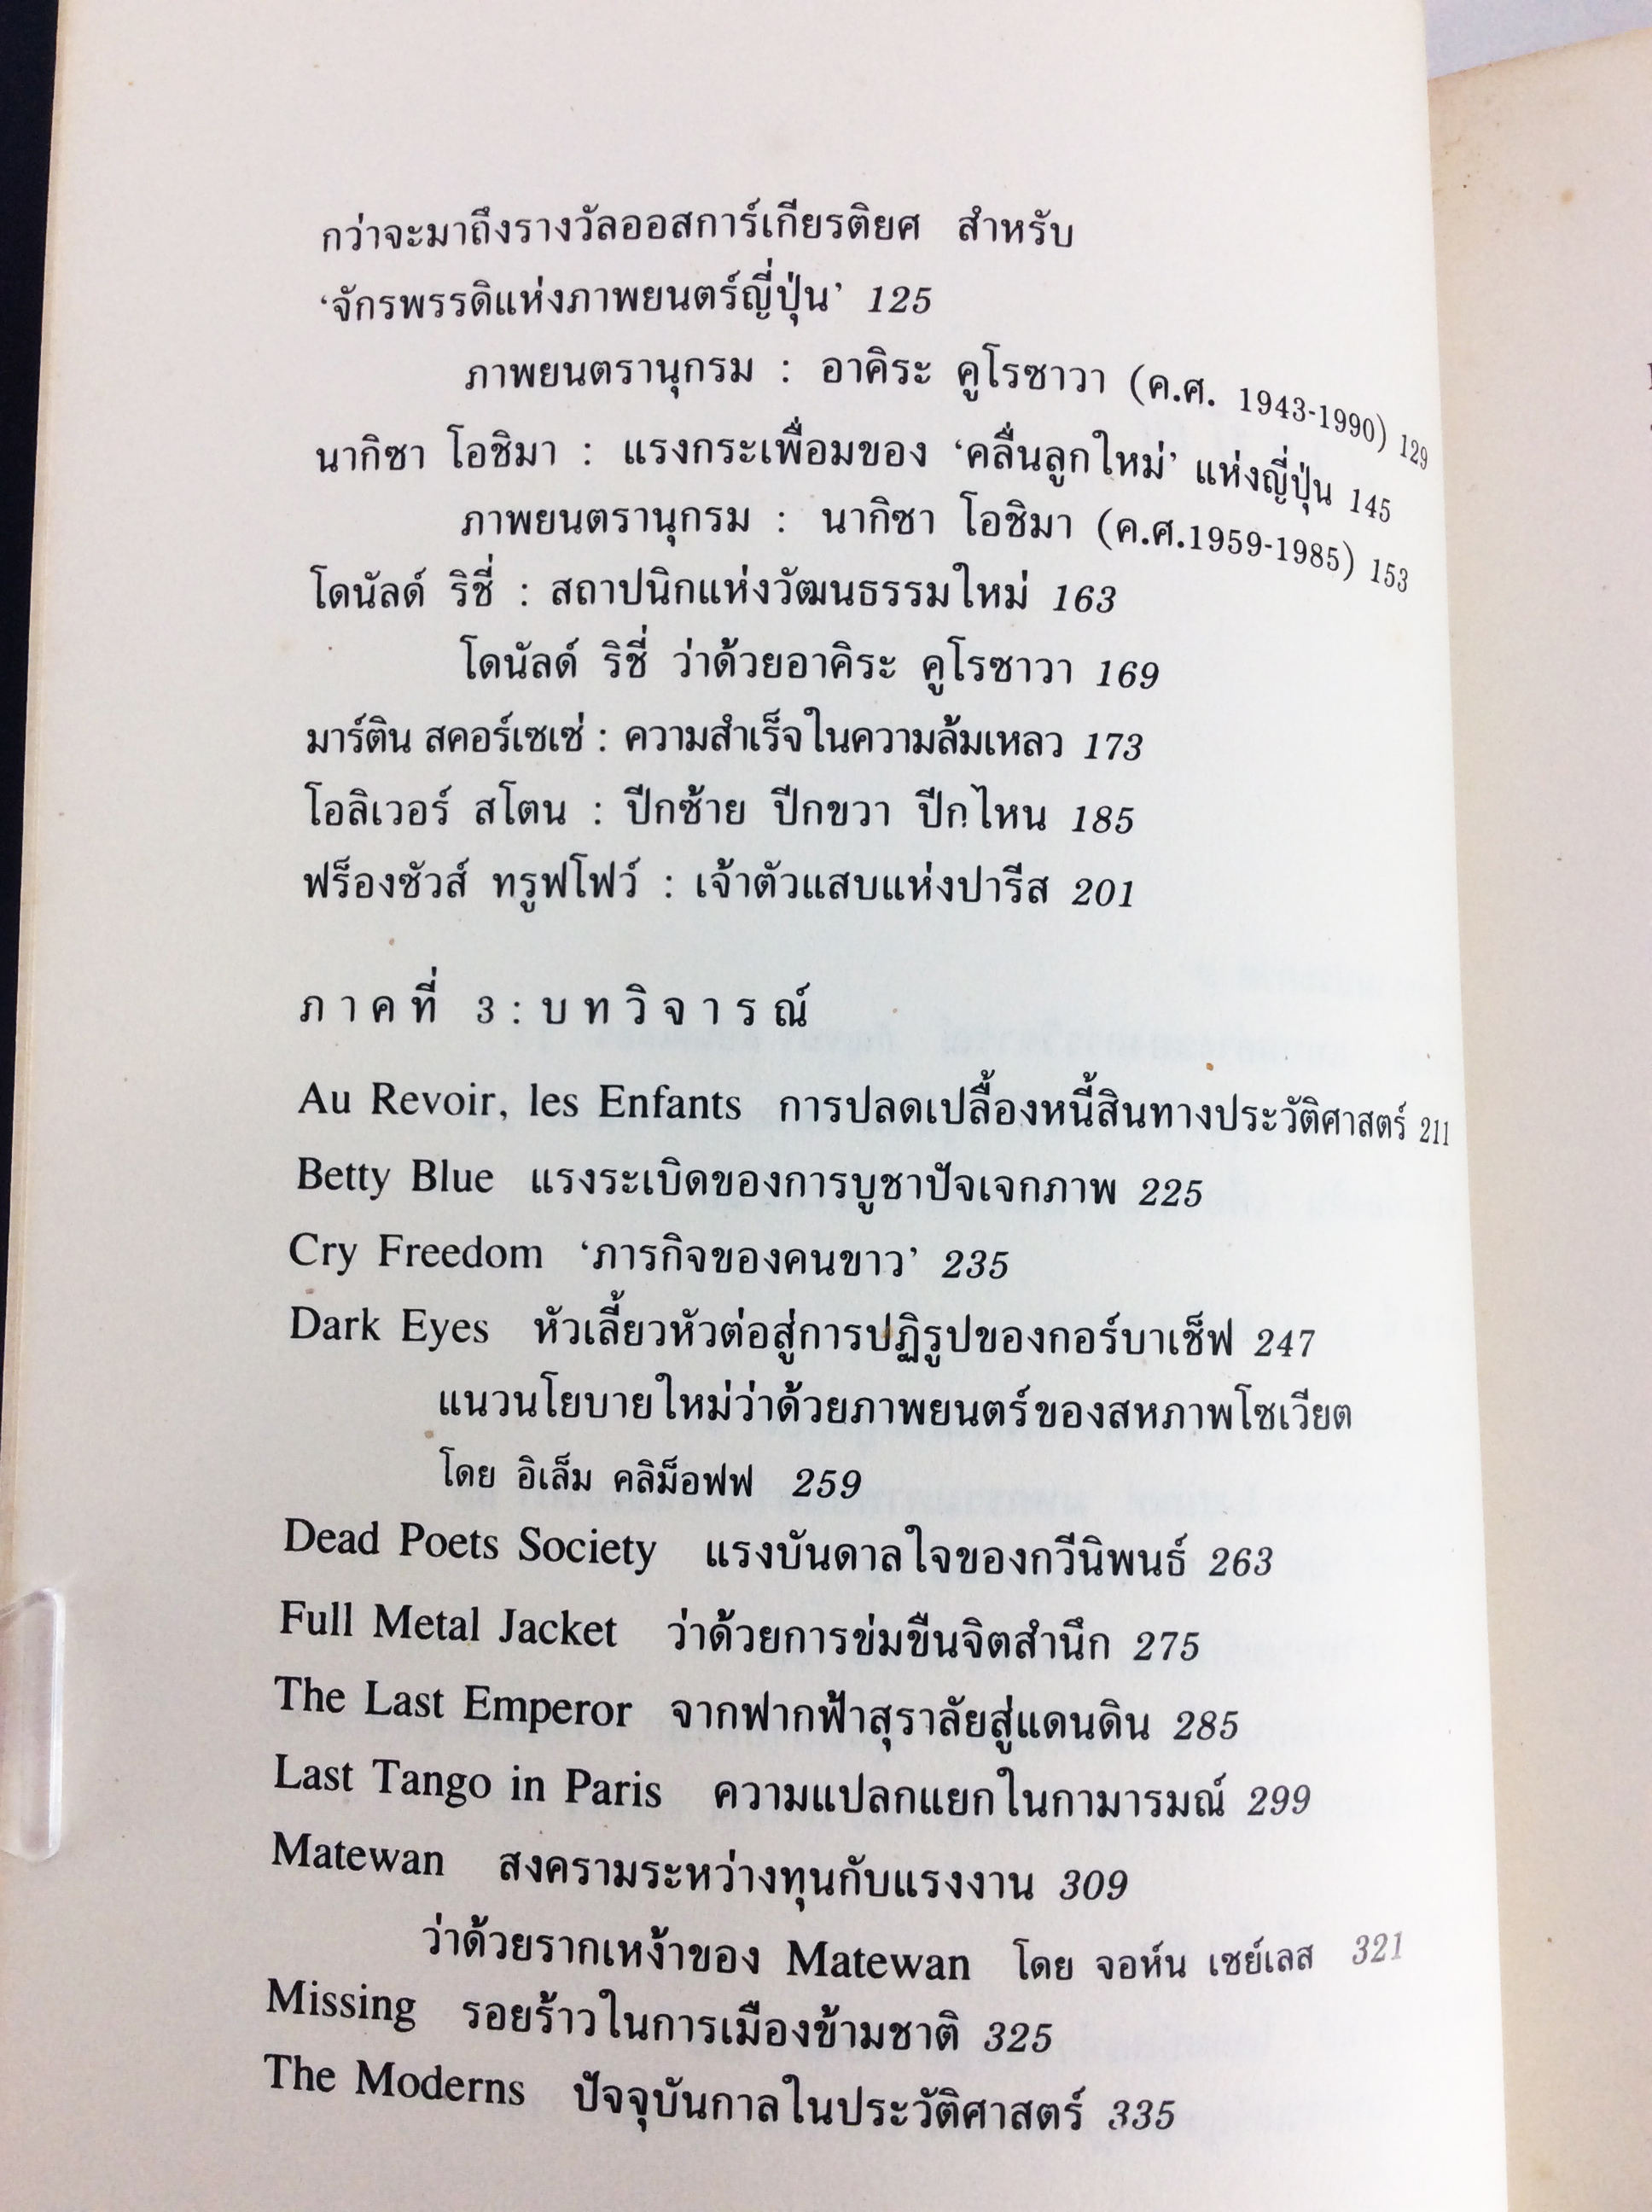 กว่าจะมาถึงรางวัลออสการ์เกียรติยศ สำหรับ
‘จักรพรรดิแห่งภาพยนตร์ญี่ปุ่น’ 125
ภาพยนตรานุกรม : อาคิระ คูโรซาวา (ค.ศ. 1943-1990) 129
นากิซา โอชิมา : แรงกระเพื่อมของ ‘คลื่นลูกใหม่’ แห่งญี่ปุ่น 145
ภาพยนตรานุกรม : นากิซา โอชิมา (ค.ศ.1959-1985) 153
โดนัลด์ ริชี่ : สถาปนิกแห่งวัฒนธรรมใหม่ 163
โดนัลด์ ริชี่ ว่าด้วยอาคิระ คูโรซาวา 169
มาร์ติน สคอร์เซเซ่ : ความสำเร็จในความล้มเหลว 173
โอลิเวอร์ สโตน : ปีกซ้าย ปีกขวา ปีกไหน 185
ฟร็องซัวส์ ทรูฟโฟว์ : เจ้าตัวแสบแห่งปารีส 201
ภาคที่ 3 : บทวิจารณ์
Au Revoir, les Enfants การปลดเปลื้องหนี้สินทางประวัติศาสตร์ 211
Betty Blue แรงระเบิดของการบูชาปัจเจกภาพ 225
Cry Freedom ‘ภารกิจของคนขาว’ 235
Dark Eyes หัวเลี้ยวหัวต่อสู่การปฏิรูปของกอร์บาเช็ฟ 247
แนวนโยบายใหม่ว่าด้วยภาพยนตร์ของสหภาพโซเวียต
โดย อิเล็ม คลิม็อฟฟ 259
Dead Poets Society แรงบันดาลใจของกวีนิพนธ์ 263
Full Metal Jacket ว่าด้วยการข่มขืนจิตสำนึก 275
The Last Emperor จากฟากฟ้าสุราลัยสู่แดนดิน 285
Last Tango in Paris ความแปลกแยกในกามารมณ์ 299
Matewan สงครามระหว่างทุนกับแรงงาน 309
ว่าด้วยรากเหง้าของ Matewan โดย จอห์น เซย์เลส 321
Missing รอยร้าวในการเมืองข้ามชาติ 325
The Moderns ปัจจุบันกาลในประวัติศาสตร์ 335